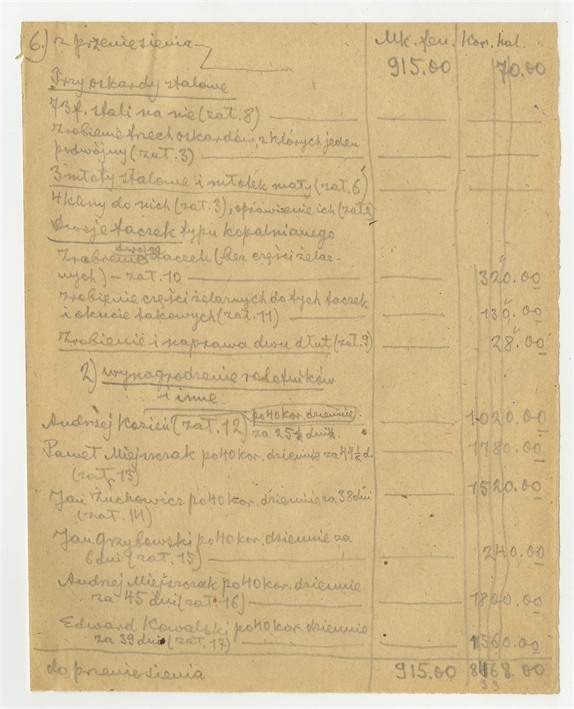 6.) z przeniesienia
Mk. fen. Kor. hal.
915.00 70.00
Trzy oskardy stalowe
73 f. stali na nie (zał. 8)
Zrobienie trzech oskardów, z których jeden
podwójny (zał. 3)
3 młoty stalowe i młotek mały (zał. 6)
4 kliny do nich (zał. 3), oprawienie ich (zał.
Dwoje taczek typu kopalnianego
Zrobienie dwojga taczek (bez części żelaz-
nych) – zał. 10 320.00
zrobienie części żelaznych do tych taczek
i okucie takowych (zał. 11) 130.00
Zrobienie i naprawa dwu dłut (zał. 9) 28.00
2) wynagrodzenie robotników
i inne
Andrzej Kozień (zał. 12) po 40 kor. dziennie
za 25½ dnia. 1020.00
Paweł Miejszczak po 40 kor. dziennie za 44½ d.
(zał. 13) 1780.00
Jan Żuchowicz po 40 kor. dziennie za 38 dni
(zał. 14) 1520.00
Jan Grzybowski po 40 kor. dziennie za
6 dni (zał. 15) 240.00
Andrzej Miejszczak po 40 kor. dziennie
za 45 dni (zał. 16) 1800.00
Edward Kowalski po 40 kor. dziennie
za 39 dni (zał. 17) 1560.00
do przeniesienia 915.00 8468.00